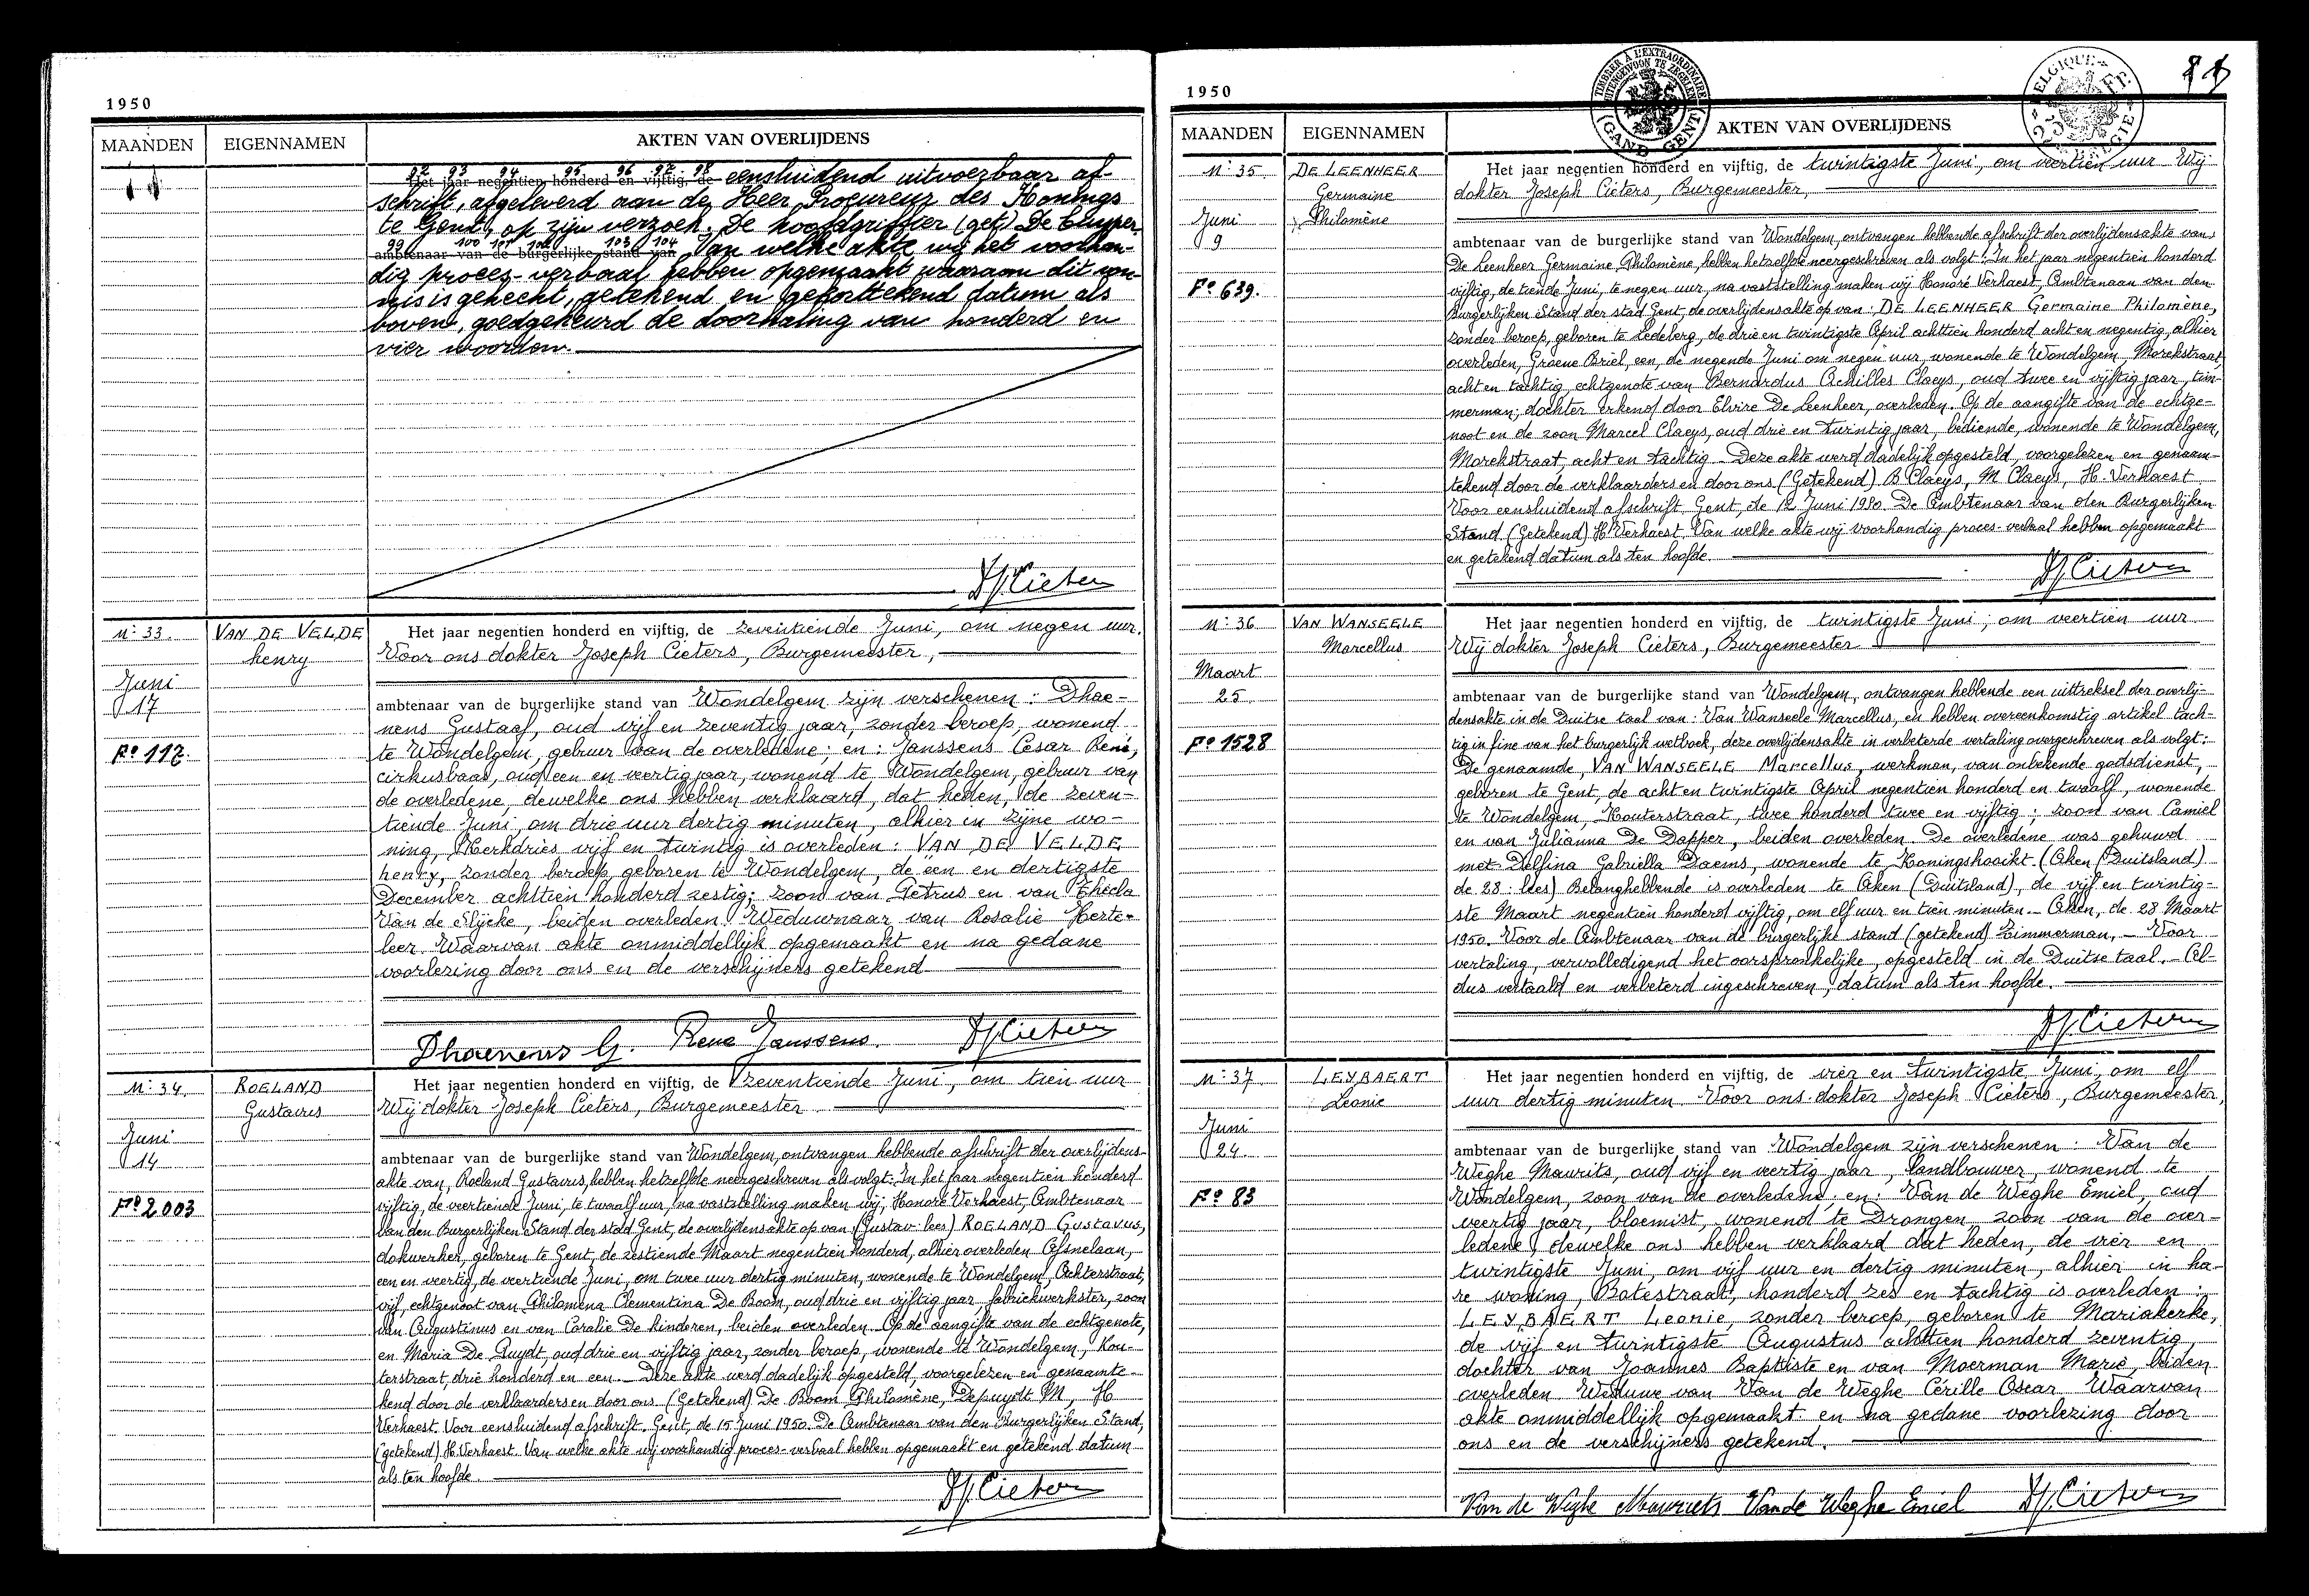 1950
MAANDEN
EIGENNAMEN
AKTEN VAN OVERLIJDENS
92 93 94 95 96 97 98
Het jaar negentien honderd en vijftig, de eensluidend uitvoerbaar af-
schrift, afgeleverd aan de Heer Procureur des Konings
te Gent, op zijn verzoek. De hoofdgriffier (get) De Cuyper
99 100 101 102 103 104
ambtenaar van de burgerlijke stand van Van welke akte wij het voorhan-
dig proces-verbaal hebben opgemaakt waaraan dit von-
nis is gehecht, getekend en gekorttekend datum als
boven, goedgekeurd de doorhaling van honderd en
vier woorden.
N: 33.
VAN DE VELDE
henry
Juni
17
Fo 117.
Het jaar negentien honderd en vijftig, de zeventiende Juni, om negen uur.
Voor ons dokter Joseph Cieters, Burgemeester,
ambtenaar van de burgerlijke stand van Wondelgem zijn verschenen: Dhae-
nens Gustaaf, oud vijf en zeventig jaar, zonder beroep, wonend
te Wondelgem, gebuur van de overledene; en: Janssens Cesar René,
cirkusbaas, oud een en veertig jaar, wonend te Wondelgem, gebuur van
de overledene, dewelke ons hebben verklaard, dat heden, de zeven-
tiende Juni, om drie uur dertig minuten, alhier in zijne wo-
ning, Kerkdries vijf en twintig is overleden: VAN DE VELDE
henry, zonder beroep, geboren te Wondelgem, de een en dertigste
December achttien honderd zestig; zoon van Petrus en van Thecla
Van de Slijcke, beiden overleden. Weduwnaar van Rosalie Herte-
leer. Waarvan akte onmiddellijk opgemaakt en na gedane
voorlezing door ons en de verschijners getekend
Dhaenens G. Rene Janssens. DJCieters
N: 34.
ROELAND
Gustavus
Juni
14
Fo 2003
Het jaar negentien honderd en vijftig, de zeventiende Juni, om tien uur
Wij dokter Joseph Cieters, Burgemeester
ambtenaar van de burgerlijke stand van Wondelgem, ontvangen hebbende afschrift der overlijdens-
akte van, Roeland Gustavus, hebben hetzelfde neergeschreven als volgt: In het jaar negentien honderd
vijftig, de veertiende Juni, te twaalf uur, na vaststelling maken wij, Honoré Verhaest, Ambtenaar
van den Burgerlijken Stand der stad Gent, de overlijdensakte op van (Gustav-lees) ROELAND Gustavus,
dokwerker, geboren te Gent, de zestiende Maart negentien honderd, alhier overleden Afsnelaan,
een en veertig, de veertiende Juni, om twee uur dertig minuten, wonende te Wondelgem, Achterstraat,
vijf, echtgenoot van Philomena Clementina De Boom, oud drie en vijftig jaar, fabriekwerkster, zoon
van Augustinus en van Coralie De kinderen, beiden overleden. Op de aangifte van de echtgenote,
en Maria De Puydt, oud drie en vijftig jaar, zonder beroep, wonende te Wondelgem, Kou-
terstraat, drie honderd en een. - Deze akte werd dadelijk opgesteld, voorgelezen en genaamte-
kend door de verklaarders en door ons. (Getekend) De Boom Philomène, Depuydt M, H
Verhaest. Voor eensluidend afschrift. Gent, de 15 Juni 1950. De Ambtenaar van den Burgerlijken Stand,
(getekend) H. Verhaest. Van welke akte wij voorhandig proces-verbaal hebben opgemaakt en getekend datum
als ten hoofde
DJCieters
1950
TIMBRER A L'EXTRAORDINAIRE
BUITENGEWOON TE ZEGELEN
(GAND GENT)
BELGIQUE
MAANDEN
EIGENNAMEN
AKTEN VAN OVERLIJDENS
N: 35
DE LEENHEER
Germaine
Philomène
Juni
9
Fo 639.
Het jaar negentien honderd en vijftig, de twintigste Juni, om veertien uur Wij
dokter Joseph Cieters, Burgemeester,
ambtenaar van de burgerlijke stand van Wondelgem, ontvangen hebbende afschrift der overlijdensakte van,
De Leenheer Germaine Philomène, hebben hetzelfde neergeschreven als volgt: In het jaar negentien honderd
vijftig, de tiende Juni, te negen uur, na vaststelling maken wij Honoré Verhaest, Ambtenaar van den
Burgerlijken Stand der stad Gent, de overlijdensakte op van: DE LEENHEER Germaine Philomène,
zonder beroep, geboren te Ledeberg, de drie en twintigste April achttien honderd acht en negentig, alhier
overleden, Groene Briel, een, de negende Juni om negen uur, wonende te Wondelgem, Morekstraat,
acht en tachtig, echtgenote van Bernardus Achilles Claeys, oud twee en vijftig jaar, tim-
merman; dochter erkend door Elvire De Leenheer, overleden. Op de aangifte van de echtge-
noot en de zoon Marcel Claeys, oud drie en twintig jaar, bediende, wonende te Wondelgem,
Morekstraat, acht en tachtig. Deze akte werd dadelijk opgesteld, voorgelezen en genaam-
tekend door de verklaarders en door ons (Getekend) B Claeys, M Claeys, H. Verhaest
Voor eensluidend afschrift. Gent, de 12 Juni 1950. De Ambtenaar van den Burgerlijken
Stand (Getekend) H. Verhaest. Van welke akte wij voorhandig proces-verbaal hebben opgemaakt
en getekend datum als ten hoofde.
DJCieters
N: 36
VAN WANSEELE
Marcellus
Maart
25
Fo 1528
Het jaar negentien honderd en vijftig, de twintigste Juni, om veertien uur
Wij dokter Joseph Cieters, Burgemeester
ambtenaar van de burgerlijke stand van Wondelgem, ontvangen hebbende een uittreksel der overlij-
densakte in de Duitse taal van: Van Wanseele Marcellus, en hebben overeenkomstig artikel tach-
tig in fine van het burgerlijk wetboek, deze overlijdensakte in verbeterde vertaling overgeschreven als volgt:
De genaamde, VAN WANSEELE Marcellus, werkman, van onbekende godsdienst,
geboren te Gent, de acht en twintigste April negentien honderd en twaalf, wonende
te Wondelgem, Kouterstraat, twee honderd twee en vijftig; zoon van Camiel
en van Julianna De Dapper, beiden overleden. De overledene was gehuwd
met Delfina Gabriella Daems, wonende te Koningshooikt. (Aken (Duitsland)
de 23: lees) Belanghebbende is overleden te Aken (Duitsland), de vijf en twintig-
ste Maart negentien honderd vijftig, om elf uur en tien minuten. - Aken, de 28 Maart
1950. Voor de Ambtenaar van de burgerlijke stand (getekend) Zimmerman, - Voor
vertaling, vervolledigend het oorspronkelijke, opgesteld in de Duitse taal. - Al-
dus vertaald en verbeterd ingeschreven, datum als ten hoofde.
DJCieters
N: 37
LEYBAERT
Leonie
Juni
24
Fo 83
Het jaar negentien honderd en vijftig, de vier en twintigste Juni, om elf
uur dertig minuten. Voor ons dokter Joseph Cieters, Burgemeester,
ambtenaar van de burgerlijke stand van Wondelgem zijn verschenen: Van de
Weghe Maurits, oud vijf en veertig jaar, landbouwer, wonend te
Wondelgem, zoon van de overledene, en: Van de Weghe Emiel, oud
veertig jaar, bloemist, wonend te Drongen, zoon van de over-
ledene, dewelke ons hebben verklaard dat heden, de vier en
twintigste Juni, om vijf uur en dertig minuten, alhier in ha-
re woning, Botestraat, honderd zes en tachtig is overleden:
LEYBAERT Leonie, zonder beroep, geboren te Mariakerke,
de vijf en twintigste Augustus achttien honderd zeventig,
dochter van Joannes Baptiste en van Moerman Marie, beiden
overleden. Weduwe van Van de Weghe Cérille Oscar. Waarvan
akte onmiddellijk opgemaakt en na gedane voorlezing door
ons en de verschijners getekend.
Van de Weghe Maurits Van de Weghe Emiel DJCieters